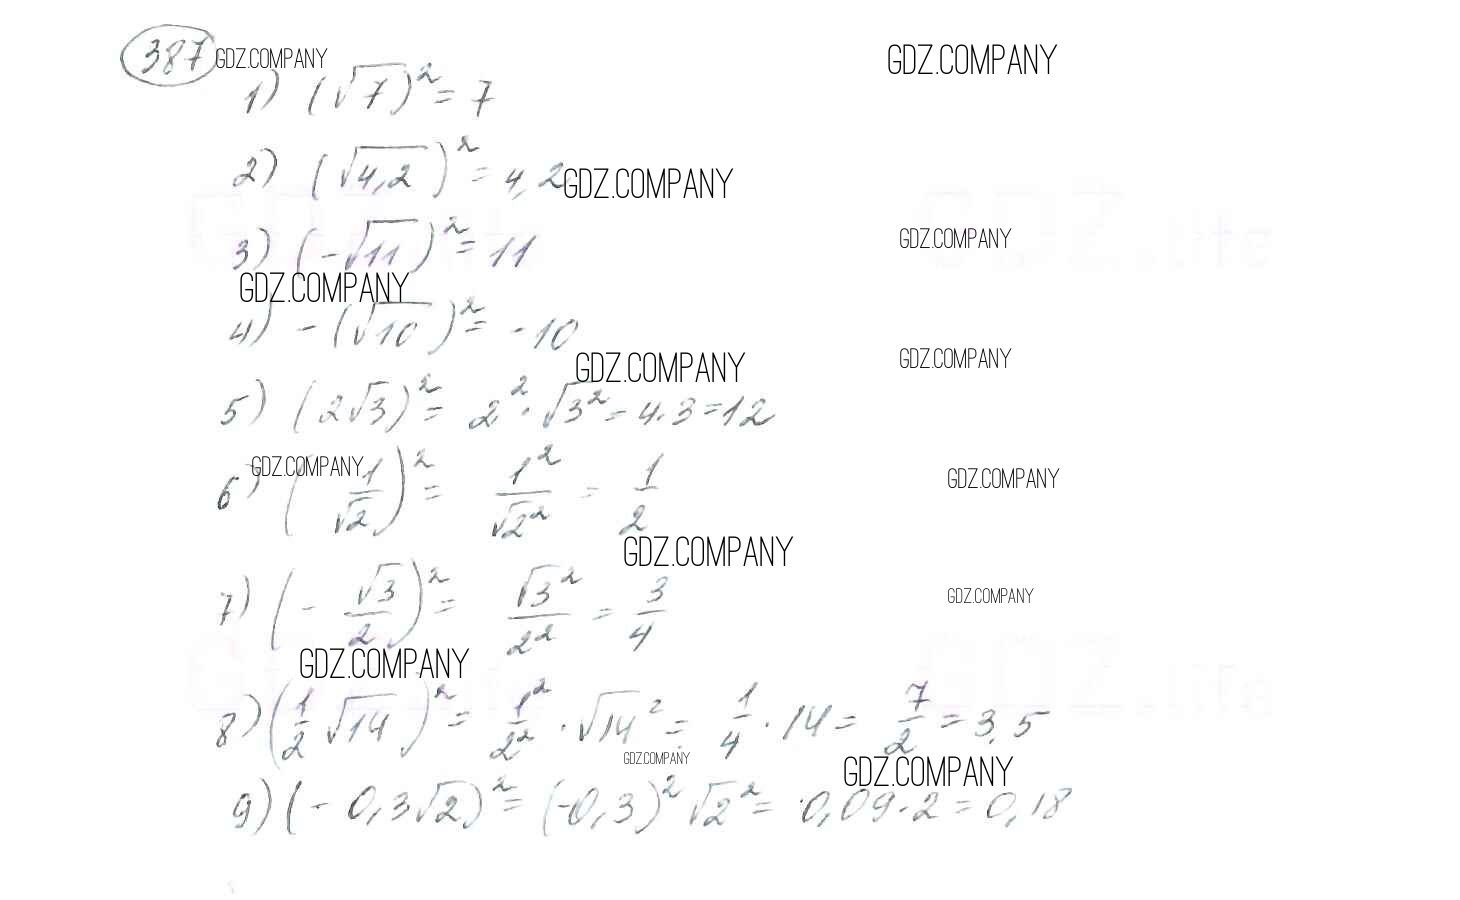 387 GDZ.COMPANY GDZ.COMPANY
1) (√7)² = 7
2) (√4,2)² = 4,2 GDZ.COMPANY
GDZ.life GDZ.life
3) (-√11)² = 11 GDZ.COMPANY
GDZ.COMPANY
4) -(√10)² = -10
GDZ.COMPANY GDZ.COMPANY
5) (2√3)² = 2² · √3² = 4 · 3 = 12
GDZ.COMPANY GDZ.COMPANY
6) (1/√2)² = 1²/√2² = 1/2
GDZ.COMPANY
7) (-√3/2)² = √3²/2² = 3/4 GDZ.COMPANY
GDZ.COMPANY
GDZ.life GDZ.life
8) (1/2 √14)² = 1²/2² · √14² = 1/4 · 14 = 7/2 = 3,5
GDZ.COMPANY GDZ.COMPANY
9) (-0,3√2)² = (-0,3)² √2² = 0,09 · 2 = 0,18